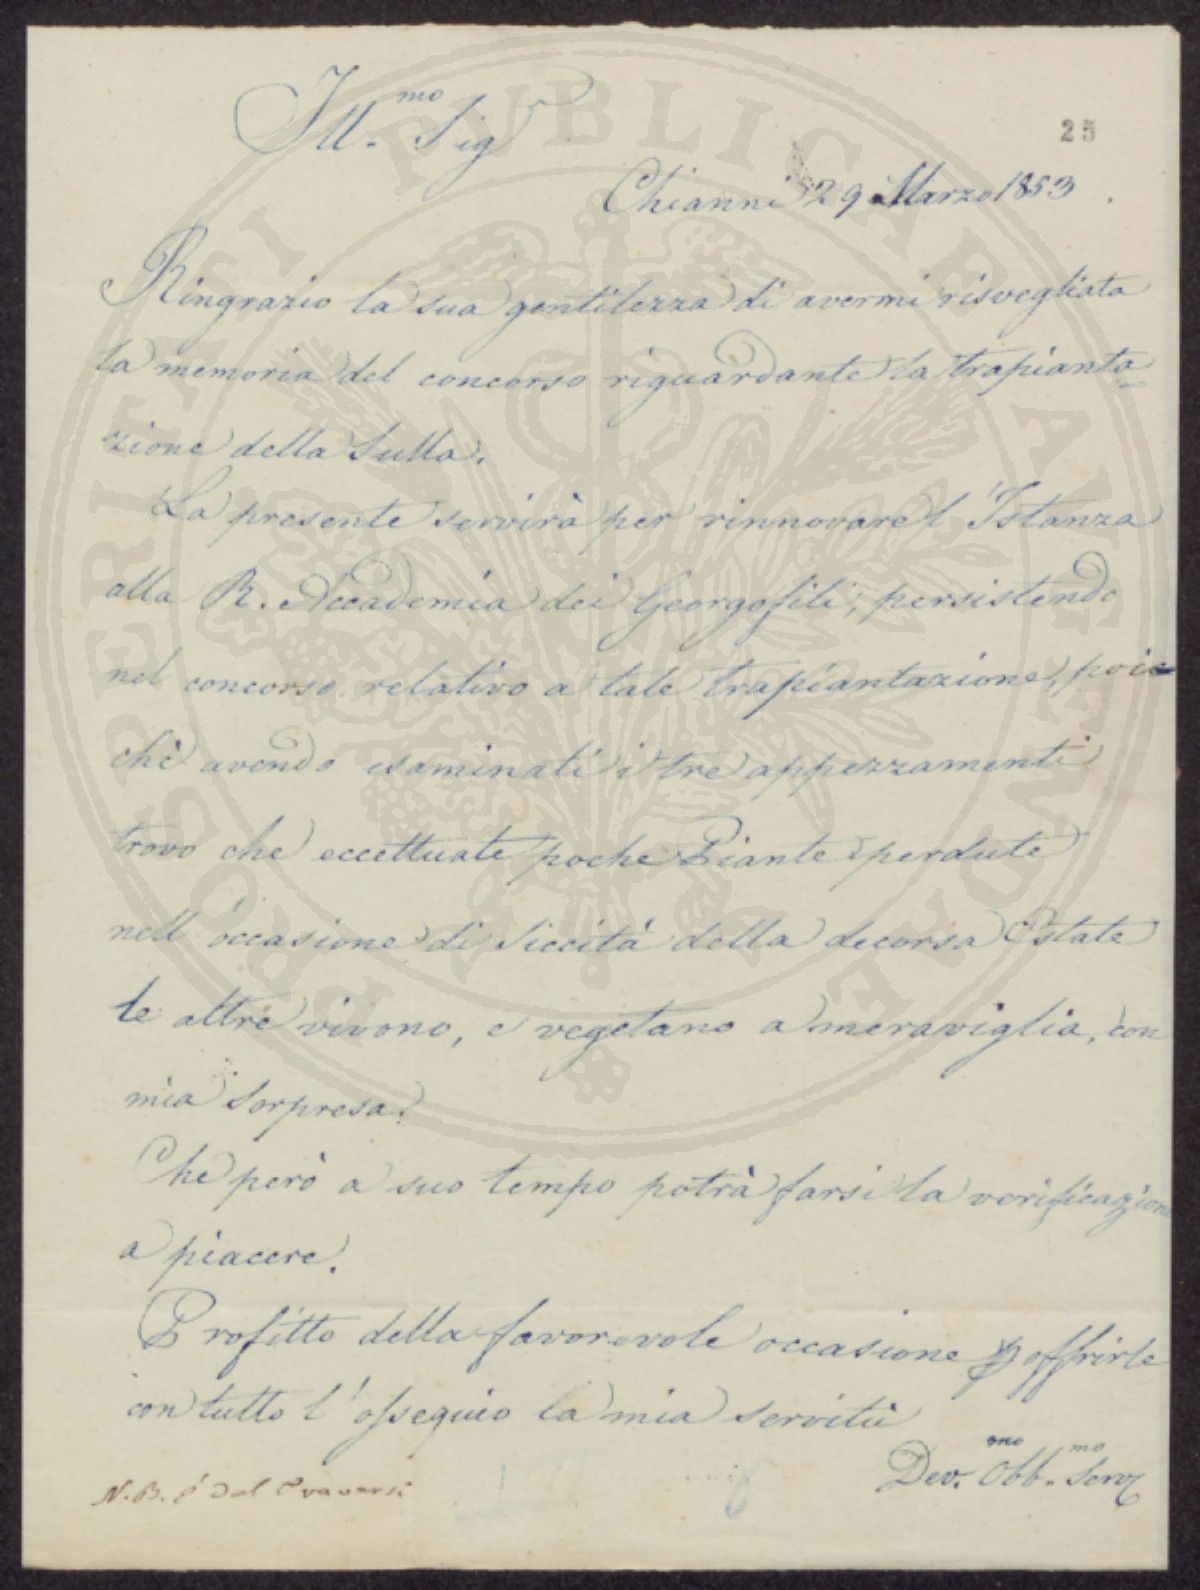 Ill.mo Sigr
25
Chianni 29 Marzo 1853.
Ringrazio la sua gentilezza di avermi risvegliata
la memoria del concorso riguardante la trapianta=
zione della Sulla.
La presente servirà per rinnovare l'Istanza
alla R. Accademia dei Georgofili, persistendo
nel concorso relativo a tale trapiantazione, poic
chè avendo esaminati i tre appezzamenti
trovo che eccettuate poche Piante sperdute
nell'occasione di Siccità della decorsa Estate
le altre vivono, e vegetano a meraviglia, con
mia sorpresa.
Che però a suo tempo potrà farsi la verificazione
a piacere.
Profitto della favorevole occasione p offrirle
con tutto l'ossequio la mia servitù
Dev.mo Obb.mo Serv
N.B. è Del
PROSPERITATI PUBLICAE AUGENDAE